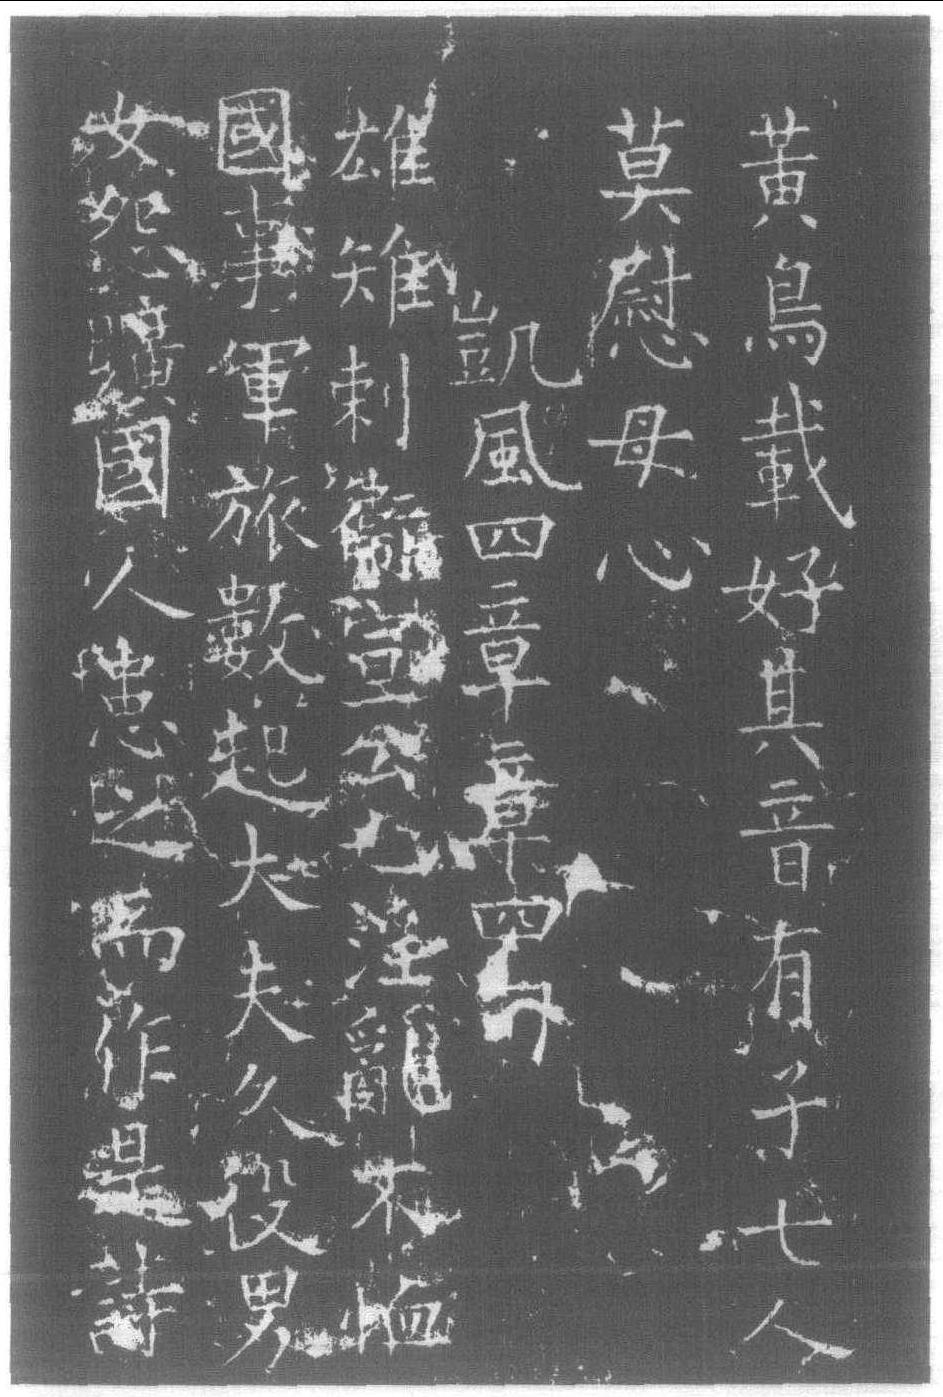 黃鳥載好其音有子七人
莫慰母心
凱風四章章四句
雄雉刺衞宣公也淫亂不恤
國事軍旅數起大夫久役男
女怨曠國人患之而作是詩